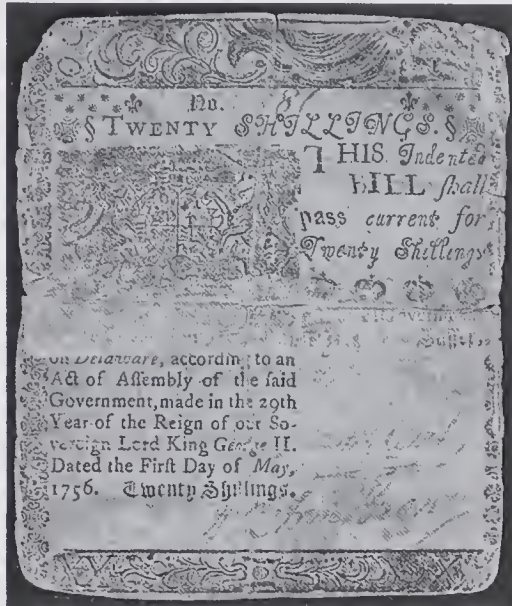 No.
§ TWENTY SHILLINGS. §
THIS Indented
BILL shall
pass current for
Twenty Shillings
on Delaware, according to an
Act of Aſſembly of the ſaid
Government, made in the 29th
Year of the Reign of our So-
vereign Lord King George II.
Dated the Firſt Day of May,
1756. Twenty Shillings.